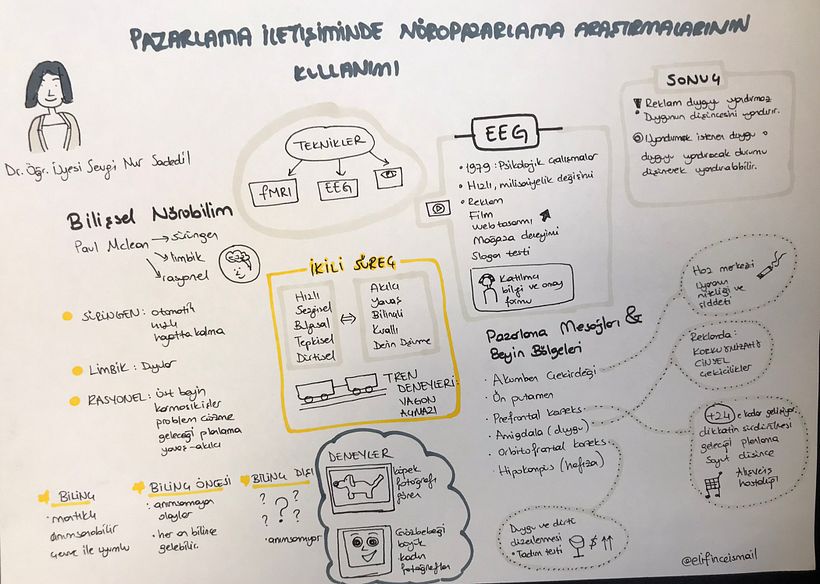 PAZARLAMA İLETİŞİMİNDE NÖROPAZARLAMA ARAŞTIRMALARININ
KULLANIMI
Dr. Öğr. Üyesi Sevgi Nur Sadedil
TEKNİKLER
fMRI
EEG
EEG
• 1979: Psikolojik çalışmalar
• Hızlı, milisaniyelik değişimi
• Reklam
Film
Web tasarımı
Mağaza deneyimi
Slogan testi
Katılımcı
bilgi ve onay
formu
SONUÇ
Reklam duygu yandırmaz
Duygunun düşüncesini yandırır.
Uyandırmak istenen duygu o
duyguyu yandıracak durumu
düşünerek yandırılabilir.
Bilişsel Nörobilim
Paul Mclean → sürüngen
limbik
rasyonel
SÜRÜNGEN: otomatik
hızlı
hayatta kalma
LİMBİK: Duygular
RASYONEL: üst beyin
karmaşık işler
problem çözme
geleceği planlama
yavaş-akılcı
İKİLİ SÜREÇ
Hızlı
Sezgisel
Duygusal
Tepkisel
Dürtüsel
Akılcı
Yavaş
Bilinçli
Kurallı
Derin Düşünme
TREN
DENEYLERİ:
VAGON
AÇMAZI
Pazarlama Mesajları &
Beyin Bölgeleri
• Akumben Çekirdeği
• Ön putamen
• Prefrontal korteks
• Amigdala (duygu)
• Orbitofrontal korteks
• Hipokampus (hafıza)
Haz merkezi
uyaranın
niteliği ve
şiddeti
Reklamda:
KORKU
CİNSEL
çekicilikler
+24 e kadar gelişiyor.
dikkatin sürdürülmesi
geleceği planlama
Soyut düşünce
Alışveriş
hastalığı
Duygu ve dürtü
düzenlenmesi
• Tadım testi $ ↑↑
BİLİNÇ
• mantıklı
anımsanabilir
çevre ile uyumlu
BİLİNÇ ÖNCESİ
• anımsamaya
olaylar
• her an bilince
gelebilir.
BİLİNÇ DIŞI
? ? ? ? ?
• anımsanmıyor
DENEYLER
köpek
fotoğrafı
gören
Gözbebeği
büyük
kadın
fotoğrafları
@elifinceismail